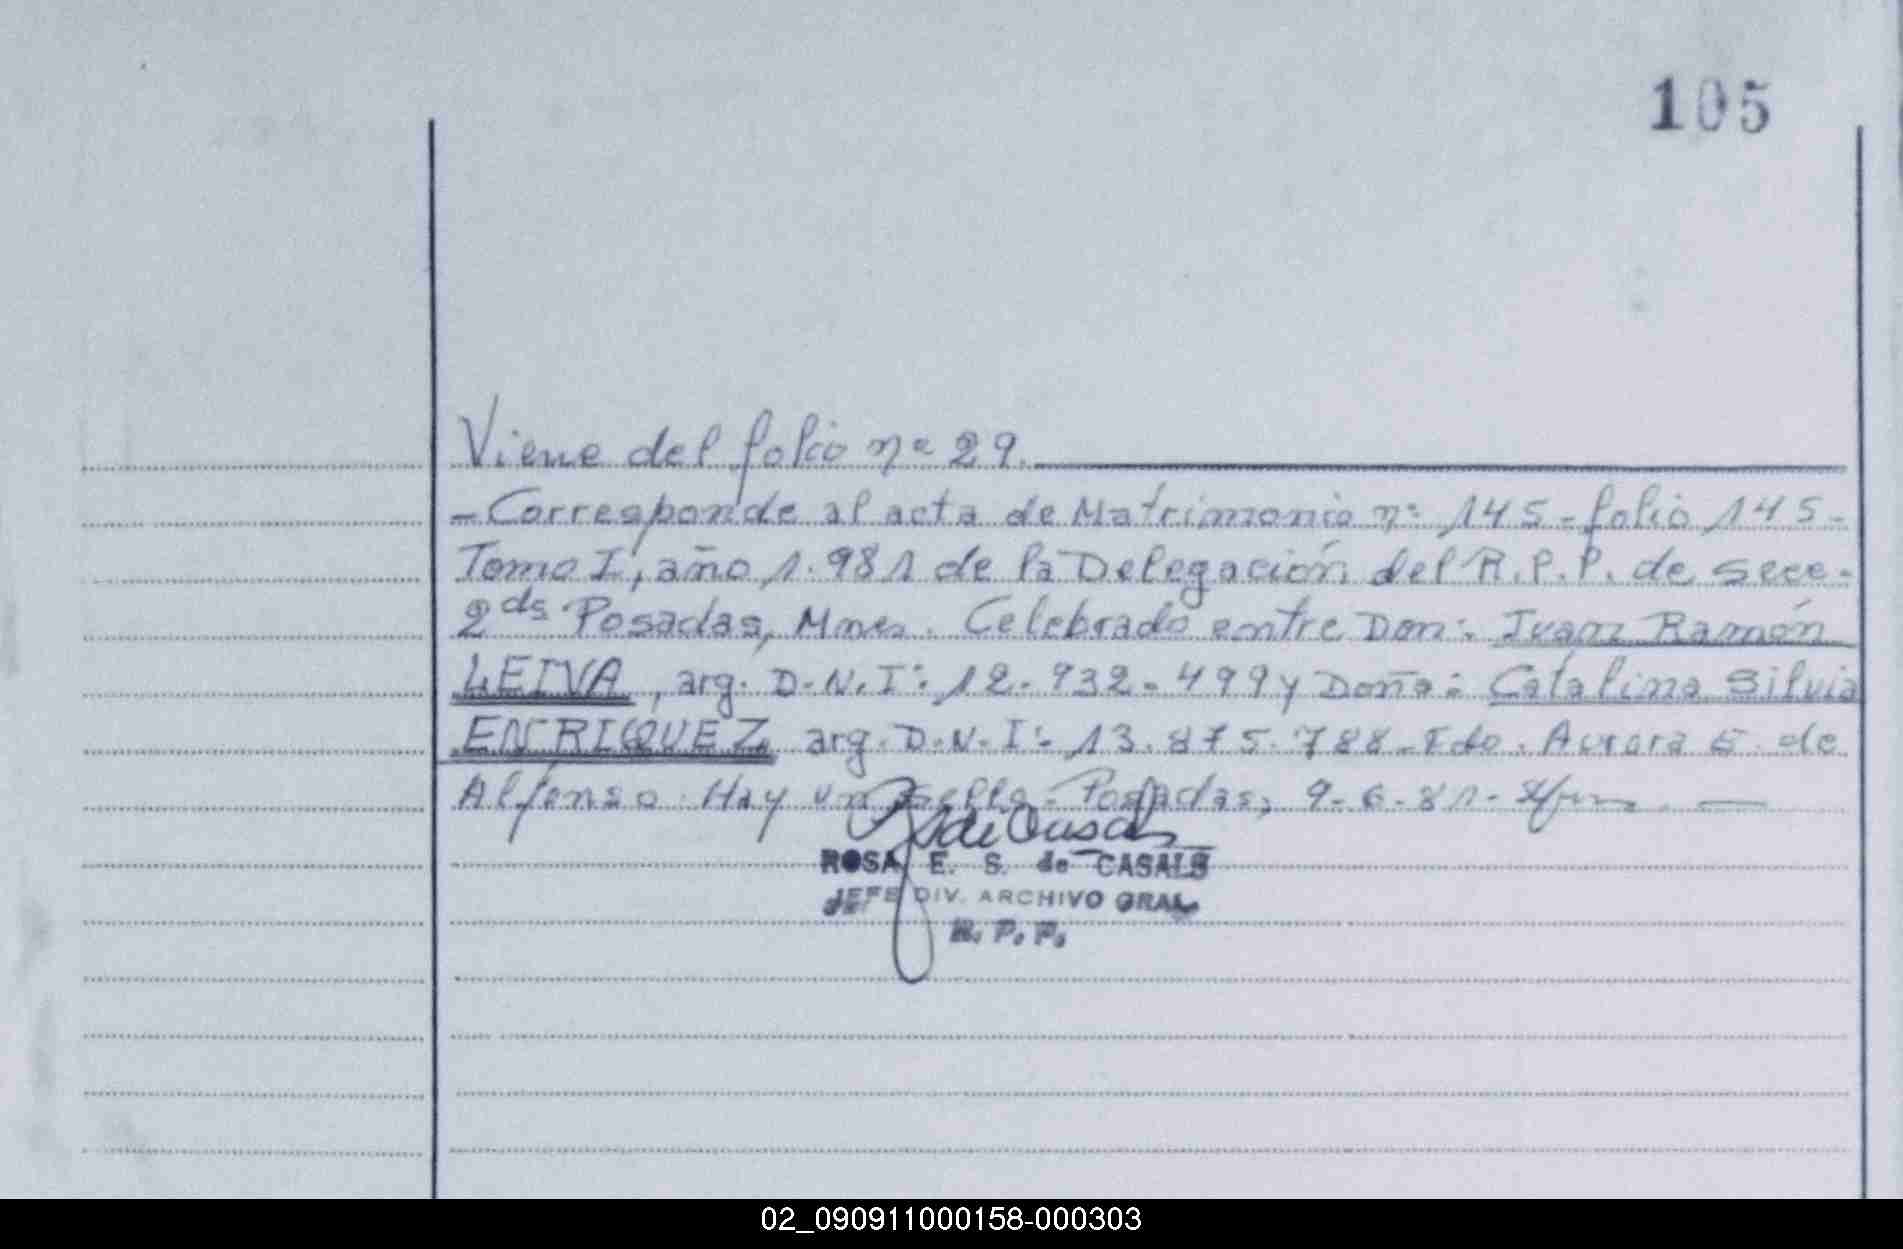 105
Viene del folio nº 29.
- Corresponde al acta de Matrimonio nº 145 - folio 145 -
Tomo I, año 1.981 de la Delegación del R.P.P. de secc.
2da Posadas, Mnes. Celebrado entre Don: Juan Ramón
LEIVA, arg. D.N.I: 12.932.499 y Doña: Catalina Silvia
ENRIQUEZ arg. D.N.I: 13.875.788 - Fdo. Aurora E. de
Alfonso. Hay un sello - Posadas, 9-6-81 -
ROSA E. S. de CASALS
JEFE DIV. ARCHIVO GRAL
R. P. P.
02_090911000158-000303